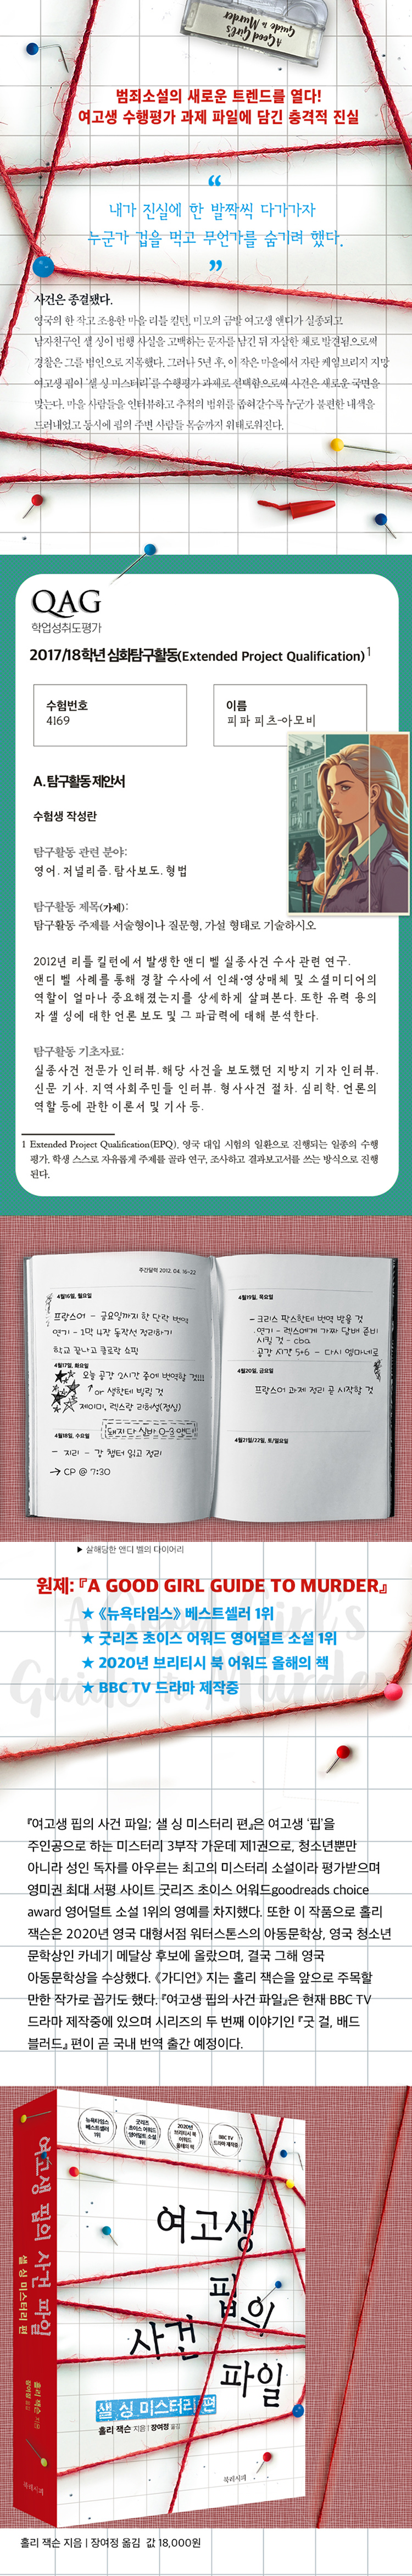 A Good Girl's
Guide to Murder
범죄소설의 새로운 트렌드를 열다!
여고생 수행평가 과제 파일에 담긴 충격적 진실
“
내가 진실에 한 발짝씩 다가가자
누군가 겁을 먹고 무언가를 숨기려 했다.
”
사건은 종결됐다.
영국의 한 작고 조용한 마을 리틀 킬턴. 미모의 금발 여고생 앤디가 실종되고
남자친구인 샐 싱이 범행 사실을 고백하는 문자를 남긴 뒤 자살한 채로 발견됨으로써
경찰은 그를 범인으로 지목했다. 그러나 5년 후, 이 작은 마을에서 자란 케임브리지 지망
여고생 핍이 ‘샐 싱 미스터리’를 수행평가 과제로 선택함으로써 사건은 새로운 국면을
맞는다. 마을 사람들을 인터뷰하고 추적의 범위를 좁혀갈수록 누군가 불편한 내색을
드러내었고 동시에 핍의 주변 사람들 목숨까지 위태로워진다.
QAG
학업성취도평가
2017/18학년 심화탐구활동(Extended Project Qualification)1
수험번호
4169
이름
피파 피츠-아모비
A. 탐구활동 제안서
수험생 작성란
탐구활동 관련 분야:
영어. 저널리즘. 탐사보도. 형법
탐구활동 제목(가제):
탐구활동 주제를 서술형이나 질문형, 가설 형태로 기술하시오
2012년 리틀 킬턴에서 발생한 앤디 벨 실종사건 수사 관련 연구.
앤디 벨 사례를 통해 경찰 수사에서 인쇄·영상매체 및 소셜미디어의
역할이 얼마나 중요해졌는지를 상세하게 살펴본다. 또한 유력 용의
자 샐 싱에 대한 언론 보도 및 그 파급력에 대해 분석한다.
탐구활동 기초자료:
실종사건 전문가 인터뷰. 해당 사건을 보도했던 지방지 기자 인터뷰.
신문 기사. 지역사회주민들 인터뷰. 형사사건 절차. 심리학. 언론의
역할 등에 관한 이론서 및 기사 등.
1 Extended Project Qualification(EPQ). 영국 대입 시험의 일환으로 진행되는 일종의 수행
평가. 학생 스스로 자유롭게 주제를 골라 연구, 조사하고 결과보고서를 쓰는 방식으로 진행
된다.
주간달력 2012. 04. 16-22
4월16일, 월요일
프랑스어 - 금요일까지 한 단락 번역
연기 - 1막 4장 동작선 정리하기
학교 끝나고 클로람 쇼핑
4월17일, 화요일
오늘 공강 2시간 중에 번역할 것!!!
or 샐한테 빌릴 것
제이미, 렉스랑 리허설(점심)
4월18일, 수요일
돼지다 심바 0-3 앤디!
- 지리 - 강 챕터 읽고 정리
→ CP @ 7:30
4월19일, 목요일
- 크리스 팍스한테 번역 받을 것
- 연기 - 렉스에게 가짜 담배 준비
시킬 것 - cba
- 공강 시간 5+6 - 다시 엘마네로
4월20일, 금요일
프랑스어 과제 정리 곧 시작할 것
4월21일/22일, 토/일요일
▶ 살해당한 앤디 벨의 다이어리
A Good Girl's
Guide to Murder
원제: 『A GOOD GIRL GUIDE TO MURDER』
★ 《뉴욕타임스》 베스트셀러 1위
★ 굿리즈 초이스 어워드 영어덜트 소설 1위
★ 2020년 브리티시 북 어워드 올해의 책
★ BBC TV 드라마 제작중
『여고생 핍의 사건 파일; 샐 싱 미스터리 편』은 여고생 ‘핍’을
주인공으로 하는 미스터리 3부작 가운데 제1권으로, 청소년뿐만
아니라 성인 독자를 아우르는 최고의 미스터리 소설이라 평가받으며
영미권 최대 서평 사이트 굿리즈 초이스 어워드goodreads choice
award 영어덜트 소설 1위의 영예를 차지했다. 또한 이 작품으로 홀리
잭슨은 2020년 영국 대형서점 워터스톤스의 아동문학상, 영국 청소년
문학상인 카네기 메달상 후보에 올랐으며, 결국 그해 영국
아동문학상을 수상했다. 《가디언》 지는 홀리 잭슨을 앞으로 주목할
만한 작가로 꼽기도 했다. 『여고생 핍의 사건 파일』은 현재 BBC TV
드라마 제작중에 있으며 시리즈의 두 번째 이야기인 『굿 걸, 배드
블러드』 편이 곧 국내 번역 출간 예정이다.
뉴욕타임스
베스트셀러
1위
굿리즈
초이스 어워드
영어덜트 소설
1위
2020년
브리티시 북
어워드
올해의 책
BBC TV
드라마 제작중
여고생
핍의
사건
파일
샐 싱 미스터리 편
홀리 잭슨 지음 | 장여정 옮김
북레시피
여고생 핍의 사건 파일
샐 싱 미스터리 편
홀리 잭슨 지음
장여정 옮김
북레시피
홀리 잭슨 지음 | 장여정 옮김 값 18,000원